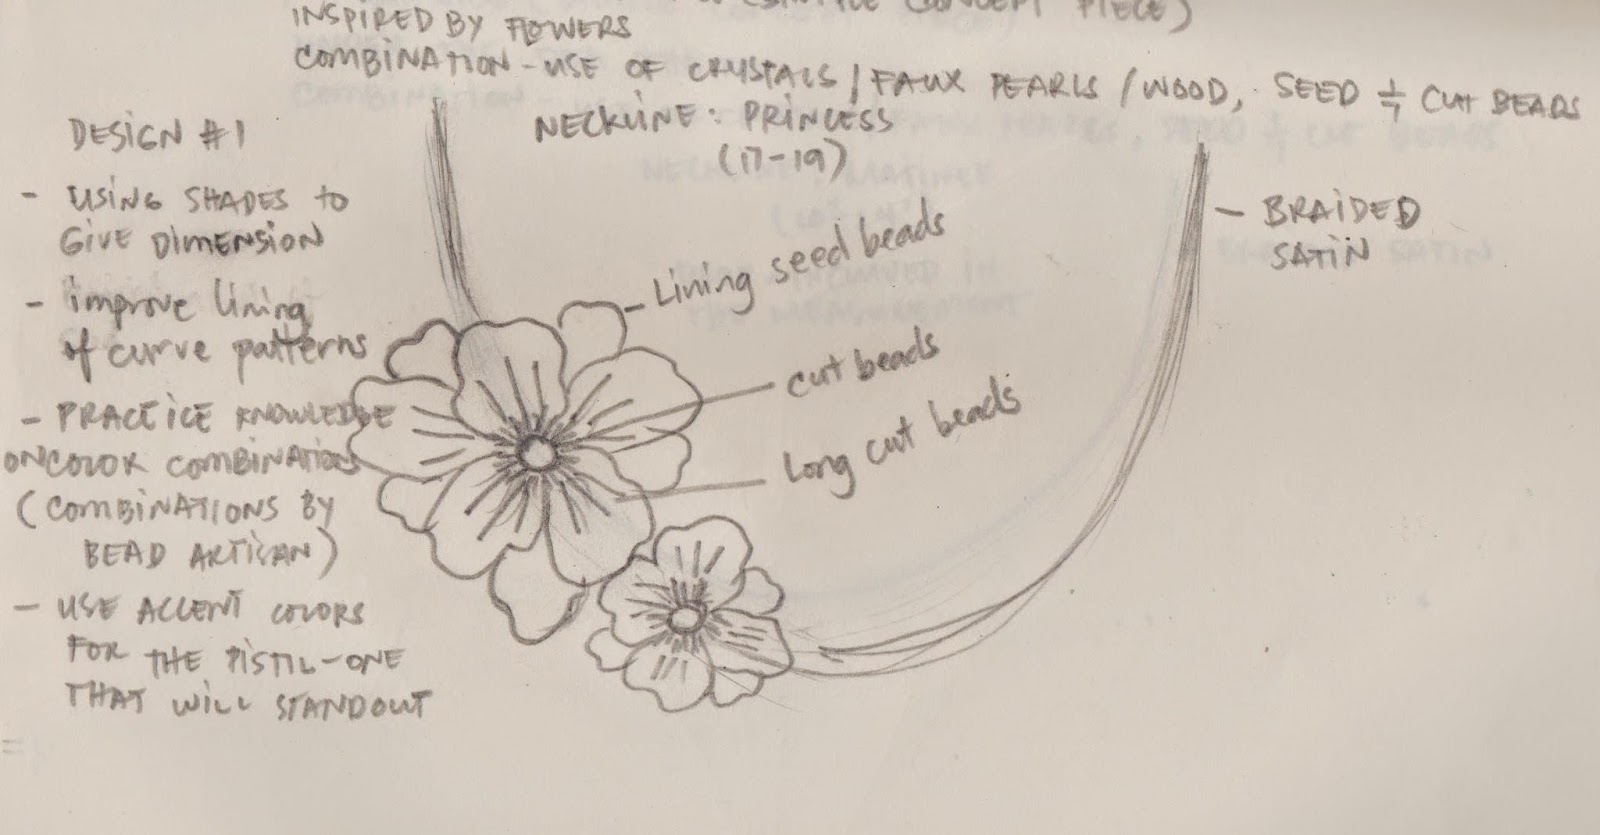 CONCEPT PIECE)
INSPIRED BY FLOWERS
COMBINATION - USE OF CRYSTALS / FAUX PEARLS / WOOD, SEED & CUT BEADS
NECKLINE: PRINCESS
(17-19)
DESIGN #1
- USING SHADES to
GIVE DIMENSION
- improve lining
of curve patterns
- PRACTICE KNOWLEDGE
ON COLOR COMBINATIONS
(COMBINATIONS BY
BEAD ARTISAN)
- USE ACCENT COLORS
FOR THE PISTIL-ONE
THAT WILL STANDOUT
- Lining seed beads
cut beads
Long cut beads
- BRAIDED
SATIN